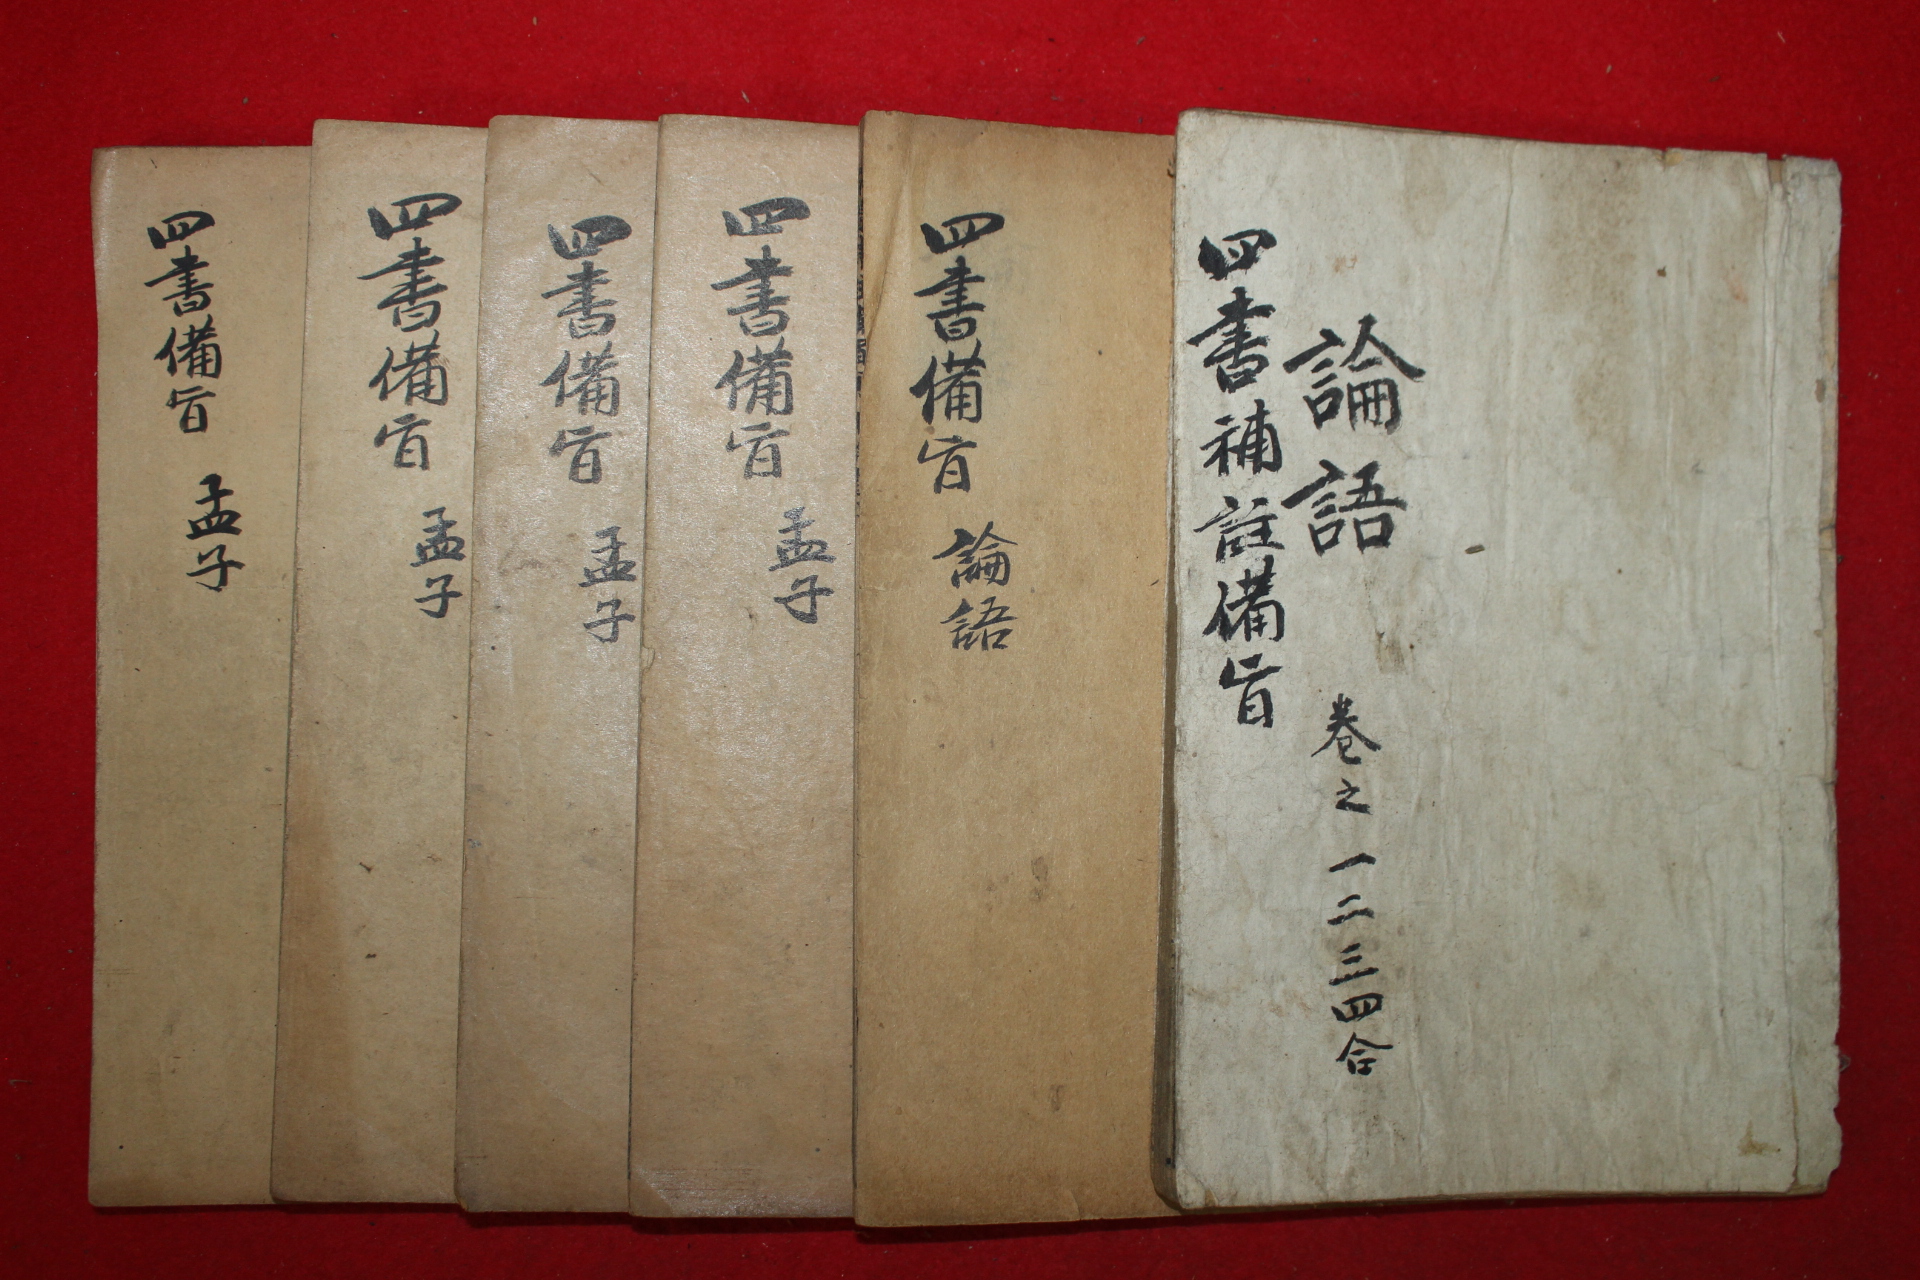 四書備旨 孟子
四書備旨 孟子
四書備旨 孟子
四書備旨 孟子
四書備旨 論語
四書補註備旨
論語 卷之一二三四合